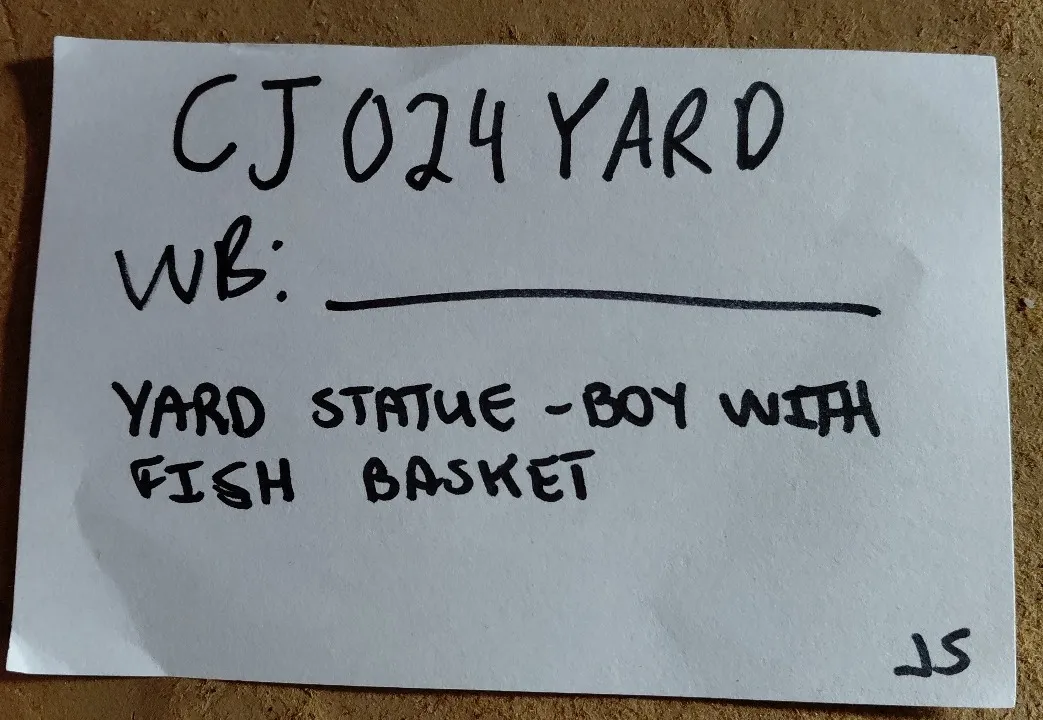 CJ024YARD
WB: ____________
YARD STATUE - BOY WITH
FISH BASKET
JS